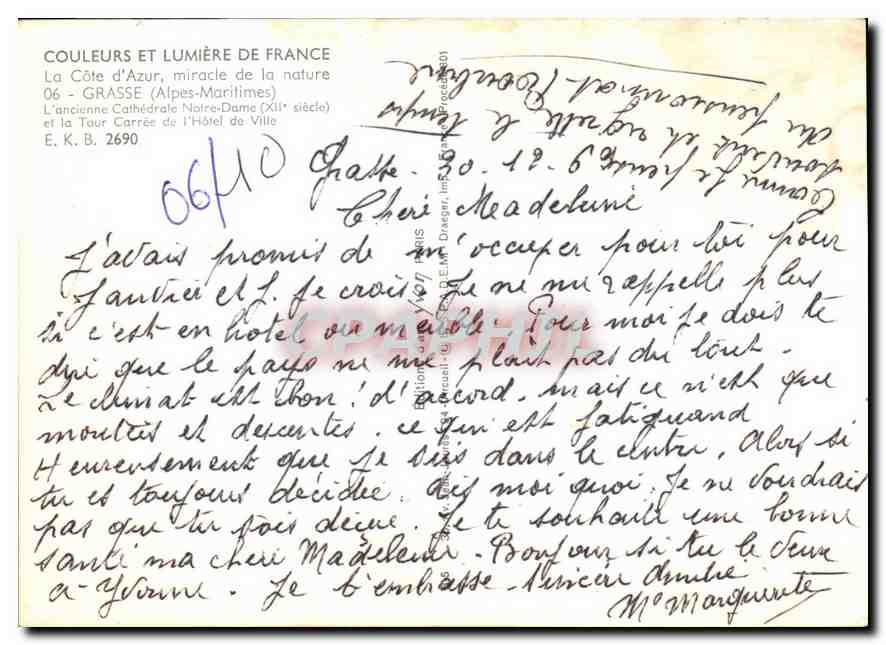 COULEURS ET LUMIÈRE DE FRANCE
La Côte d'Azur, miracle de la nature
06 - GRASSE (Alpes-Maritimes)
L'ancienne Cathédrale Notre-Dame (XIIe siècle)
et la Tour Carrée de l'Hôtel de Ville
E. K. B. 2690
06/10
Grasse - 30-12-69
Cheré Madeleine
J'avais promis de m'occuper pour toi pour
Janvier et f. je crois. Je ne me rappelle plus
si c'est en hotel ou meublé. Pour moi je dois te
dire que le pays ne me plait pas du tout.
Le climat est bon! d'accord, mais ce n'est que
monttés et descentes, ce qui est fatiguand
Heureusement que je suis dans le centre. Alors si
tu es toujours décidée, dis moi quoi. Je ne voudrais
pas que tu sois décue. Je te souhaite une bonne
santé ma cheré Madeleine. Bonjour si tu le veux
a Yvonne. Je t'embrasse. Sincère Amitié
Me Marguerite
souvent et regrette le temps
du pensionnat
Editions d'art Yvon PARIS
CPAPHIL